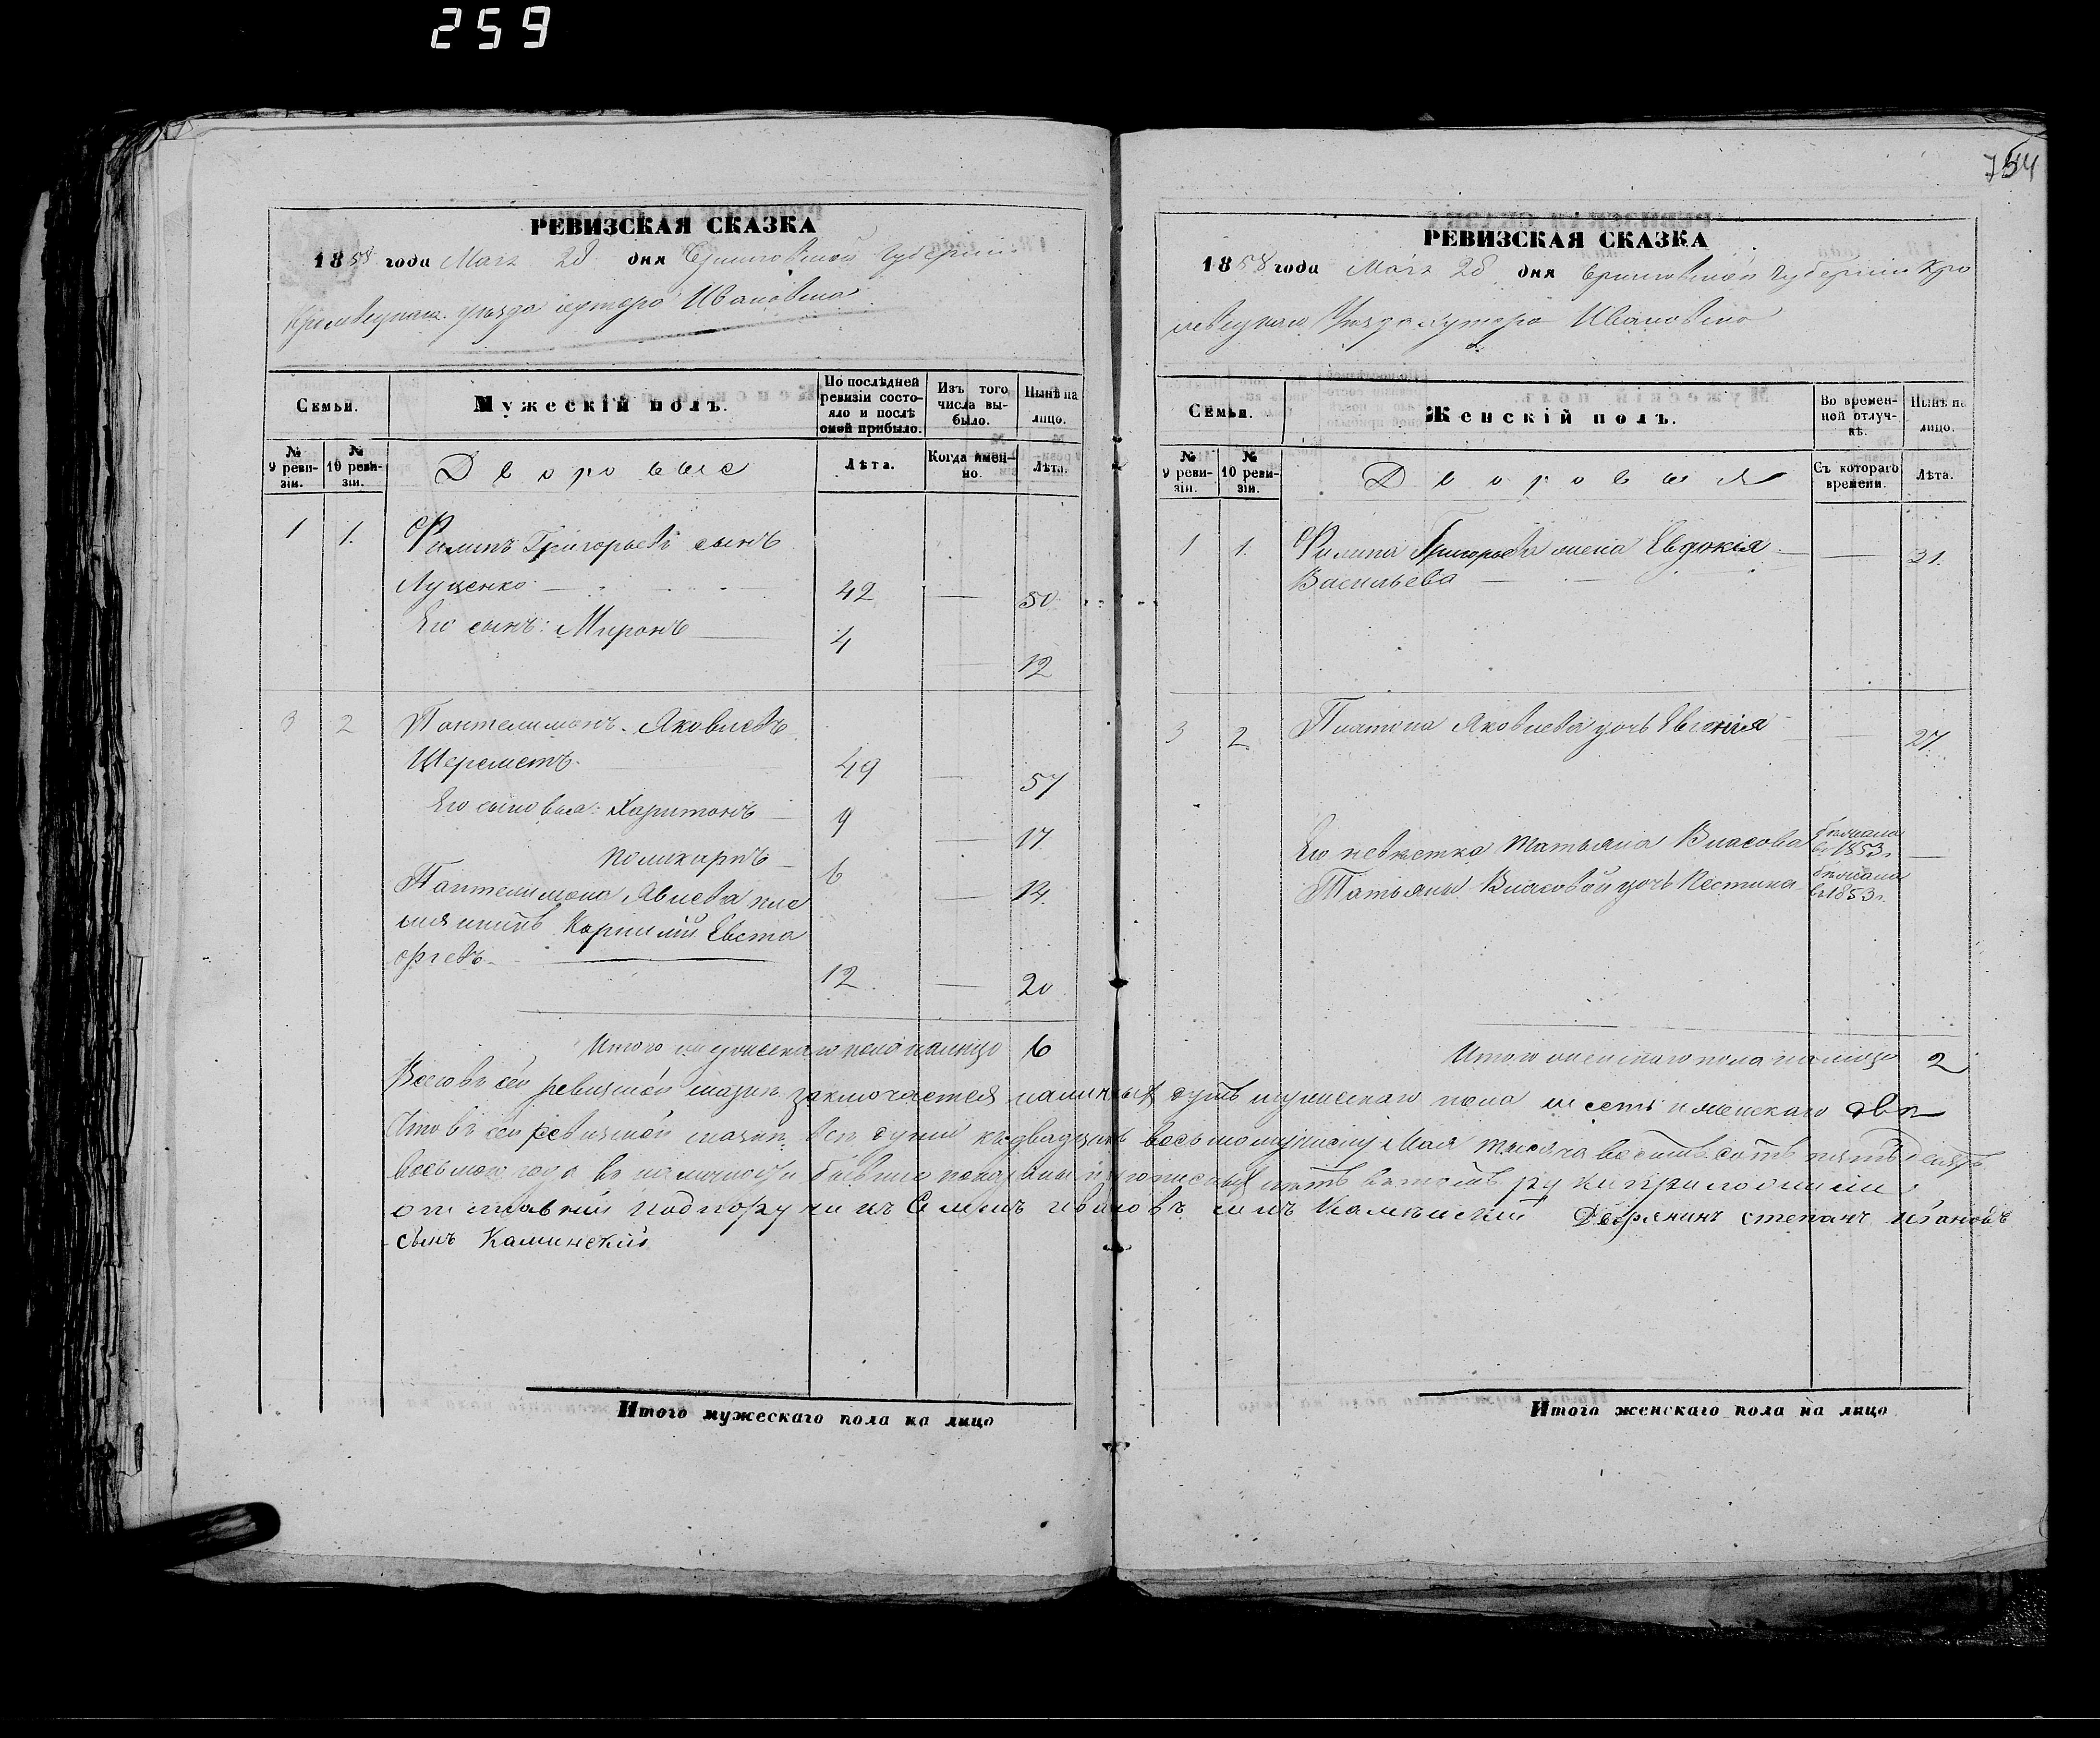 259
РЕВИЗСКАЯ СКАЗКА
1858 года Мая 28 дня Черниговской Губерніи
Кролевецкаго уѣзда хутора Ивановка
Семьи.
Мужескій полъ.
По послѣдней ревизіи состояло и послѣ оной прибыло.
Изъ того числа выбыло.
Нынѣ на лицо.
№ 9 ревизіи.
№ 10 ревизіи.
Дворовые
Лѣта.
Когда именно.
Лѣта.
1 1. Филипъ Григорьевъ сынъ
Луценко — 42 — 50
Его сынъ: Миронъ — 4 — 12
3 2 Пантелимонъ Яковлевъ
Шереметъ. 49 — 57
Его сыновья: Харитонъ — 9 — 17
Поликарпъ — 6 — 14
Пантелимона Явлева пле
мянникъ Корнилій Евста
фіевъ — 12 — 20
Итого мужескаго пола налицо 6
754
РЕВИЗСКАЯ СКАЗКА
1858 года Мая 28 дня Черниговской Губерніи Кро
левецкаго Уѣзда хутора Ивановка
Семьи.
Женскій полъ.
Во временной отлучкѣ.
Нынѣ на лицо.
№ 9 ревизіи.
№ 10 ревизіи.
Дворовыя
Съ котораго времени.
Лѣта.
1 1. Филипа Григорьева жена Евдокія — — 31.
Васильева —
3 2 Яковлева дочь Евгенія — 27.
Его невѣстка Татьяна Власова бѣжала въ 1853 г. —
Татьяны Власовой дочь Кестина бѣжала въ 1853 г.
Итого женскаго пола налицо 2
Всего въ сей ревизской сказкѣ заключается наличныхъ душъ мужескаго пола шесть и женскаго двѣ
Что въ сей ревизской сказкѣ всѣ души къ двадцать восьмому числу Мая тысяча восемьсотъ пятьдесятъ
восьмаго года въ наличности показаны и прописныхъ нѣтъ въ томъ руки приложили
отставний подпоручикъ Семенъ Ивановъ синъ Каминский Дворянинъ степанъ ивановъ
сынъ Каминский
Итого мужескаго пола на лицо
Итого женскаго пола на лицо